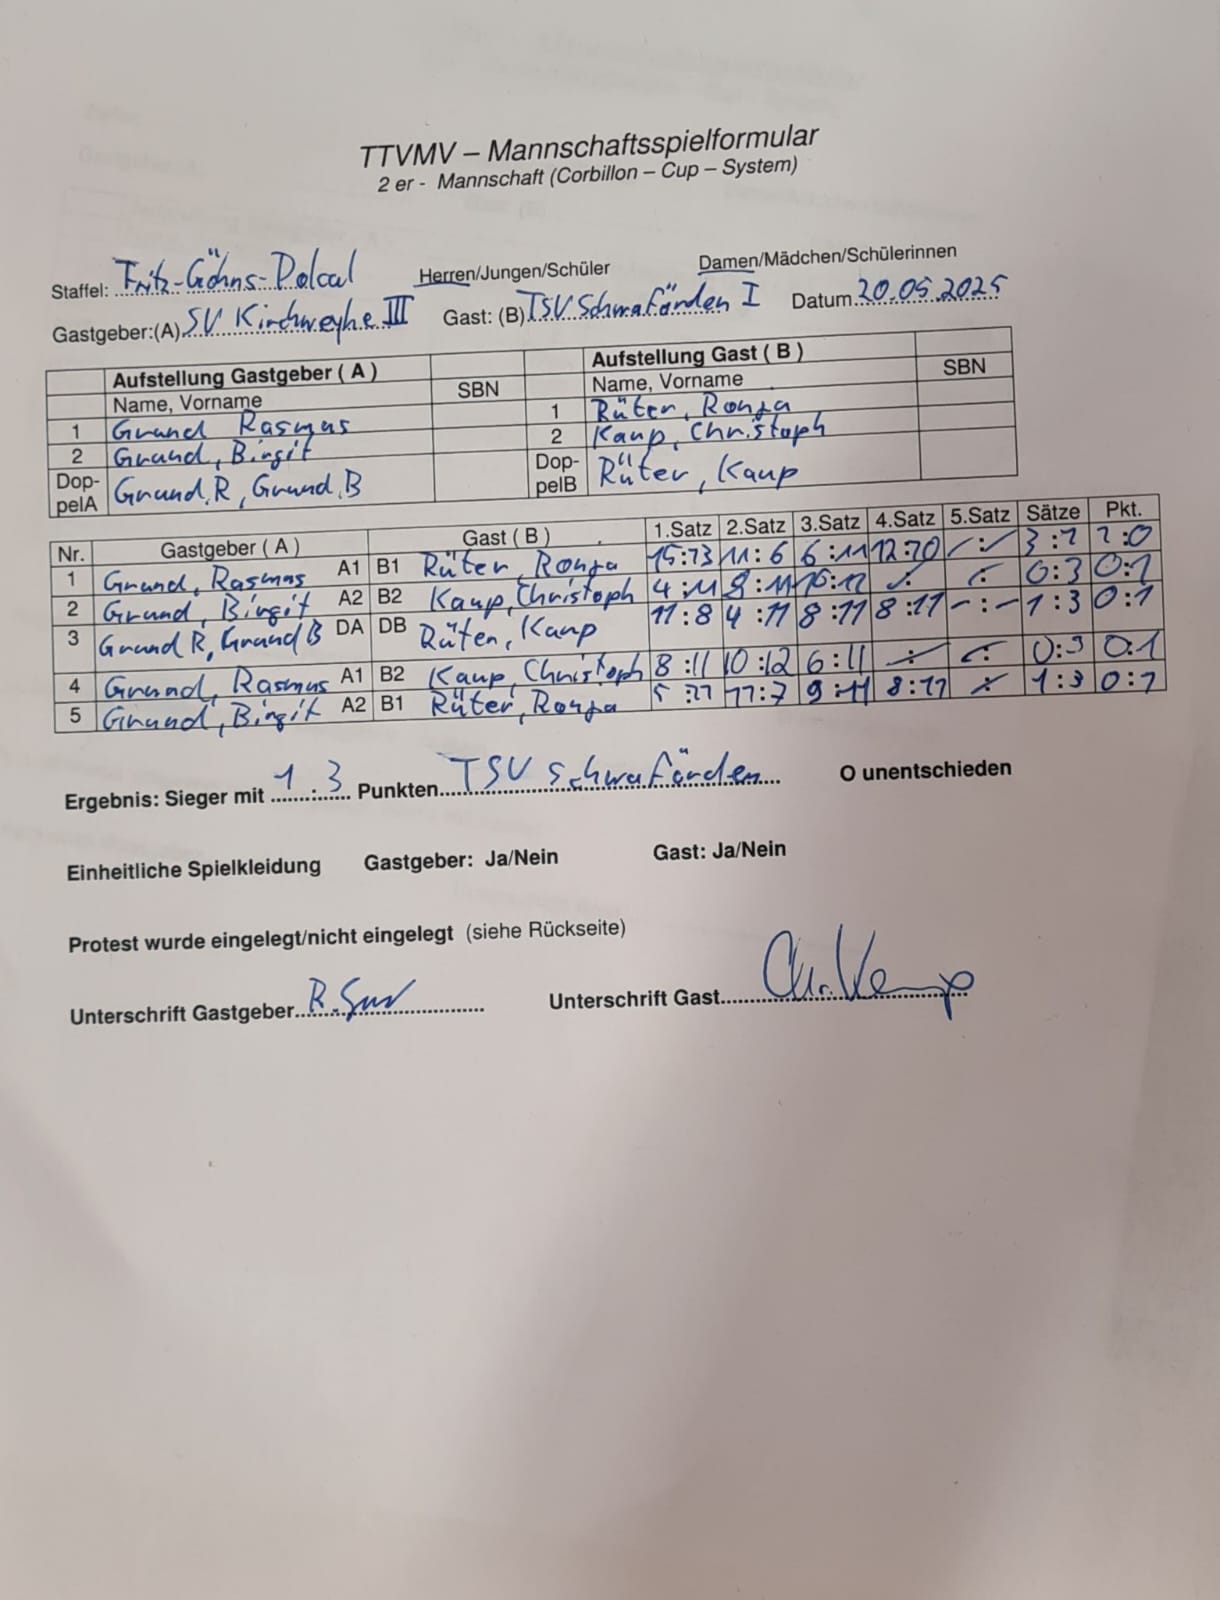 TTVMV – Mannschaftsspielformular
2 er - Mannschaft (Corbillon – Cup – System)
Staffel: Fritz-Göhns-Pokal Herren/Jungen/Schüler Damen/Mädchen/Schülerinnen
Gastgeber:(A) SV Kirchweyhe III Gast: (B) TSV Schwaförden I Datum 20.05.2025
Aufstellung Gastgeber ( A ) Aufstellung Gast ( B )
Name, Vorname SBN Name, Vorname SBN
1 Grund Rasmus 1 Rüter, Ronja
2 Grund, Birgit 2 Kaup, Christoph
Dop-pelA Grund.R, Grund.B Dop-pelB Rüter, Kaup
Nr. Gastgeber ( A ) Gast ( B ) 1.Satz 2.Satz 3.Satz 4.Satz 5.Satz Sätze Pkt.
1 Grund, Rasmus A1 B1 Rüter, Ronja 15:13 11:6 6:11 12:10 -:- 3:1 1:0
2 Grund, Birgit A2 B2 Kaup, Christoph 4:11 9:11 10:12 -:- -:- 0:3 0:1
3 Grund R, Grund B DA DB Rüter, Kaup 11:8 4:11 8:11 8:11 -:- 1:3 0:1
4 Grund, Rasmus A1 B2 Kaup, Christoph 8:11 10:12 6:11 -:- -:- 0:3 0:1
5 Grund, Birgit A2 B1 Rüter, Ronja 5:11 11:7 9:11 8:11 -:- 1:3 0:1
Ergebnis: Sieger mit 1:3 Punkten TSV Schwaförden O unentschieden
Einheitliche Spielkleidung Gastgeber: Ja/Nein Gast: Ja/Nein
Protest wurde eingelegt/nicht eingelegt (siehe Rückseite)
Unterschrift Gastgeber R. Unterschrift Gast